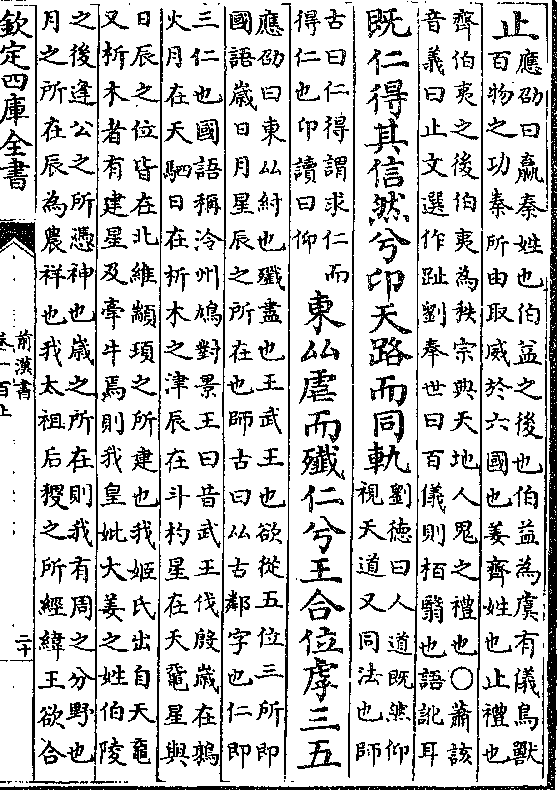 止應劭曰嬴秦姓也伯益之後也伯益為虞有儀鳥獸
百物之功秦所由取威於六國也姜齊姓也止禮也
齊伯夷之後伯夷為秩宗典天地人鬼之禮也○蕭該
音義曰止文選作趾劉奉世曰百儀則柏翳也語訛耳
既仁得其信然兮卬天路而同軌劉德曰人道既然仰
視天道又同法也師
古曰仁得謂求仁而
得仁也卬讀曰仰
東厸虐而殲仁兮王合位虖三五
應劭曰東厸紂也殲盡也王武王也欲從五位三所即
國語歲日月星辰之所在也師古曰厸古鄰字也仁即
三仁也國語稱泠州鳩對景王曰昔武王伐殷歲在鶉
火月在天駟日在析木之津辰在斗杓星在天黿星與
日辰之位皆在北維顓頊之所建也我姬氏出自天黿
又析木者有建星及牽牛焉則我皇妣大姜之姓伯陵
之後逢公之所憑神也歲之所在則我有周之分野也
月之所在辰為農祥也我太祖后稷之所經緯王欲合
欽定四庫全書
前漢書
卷一百上
二十